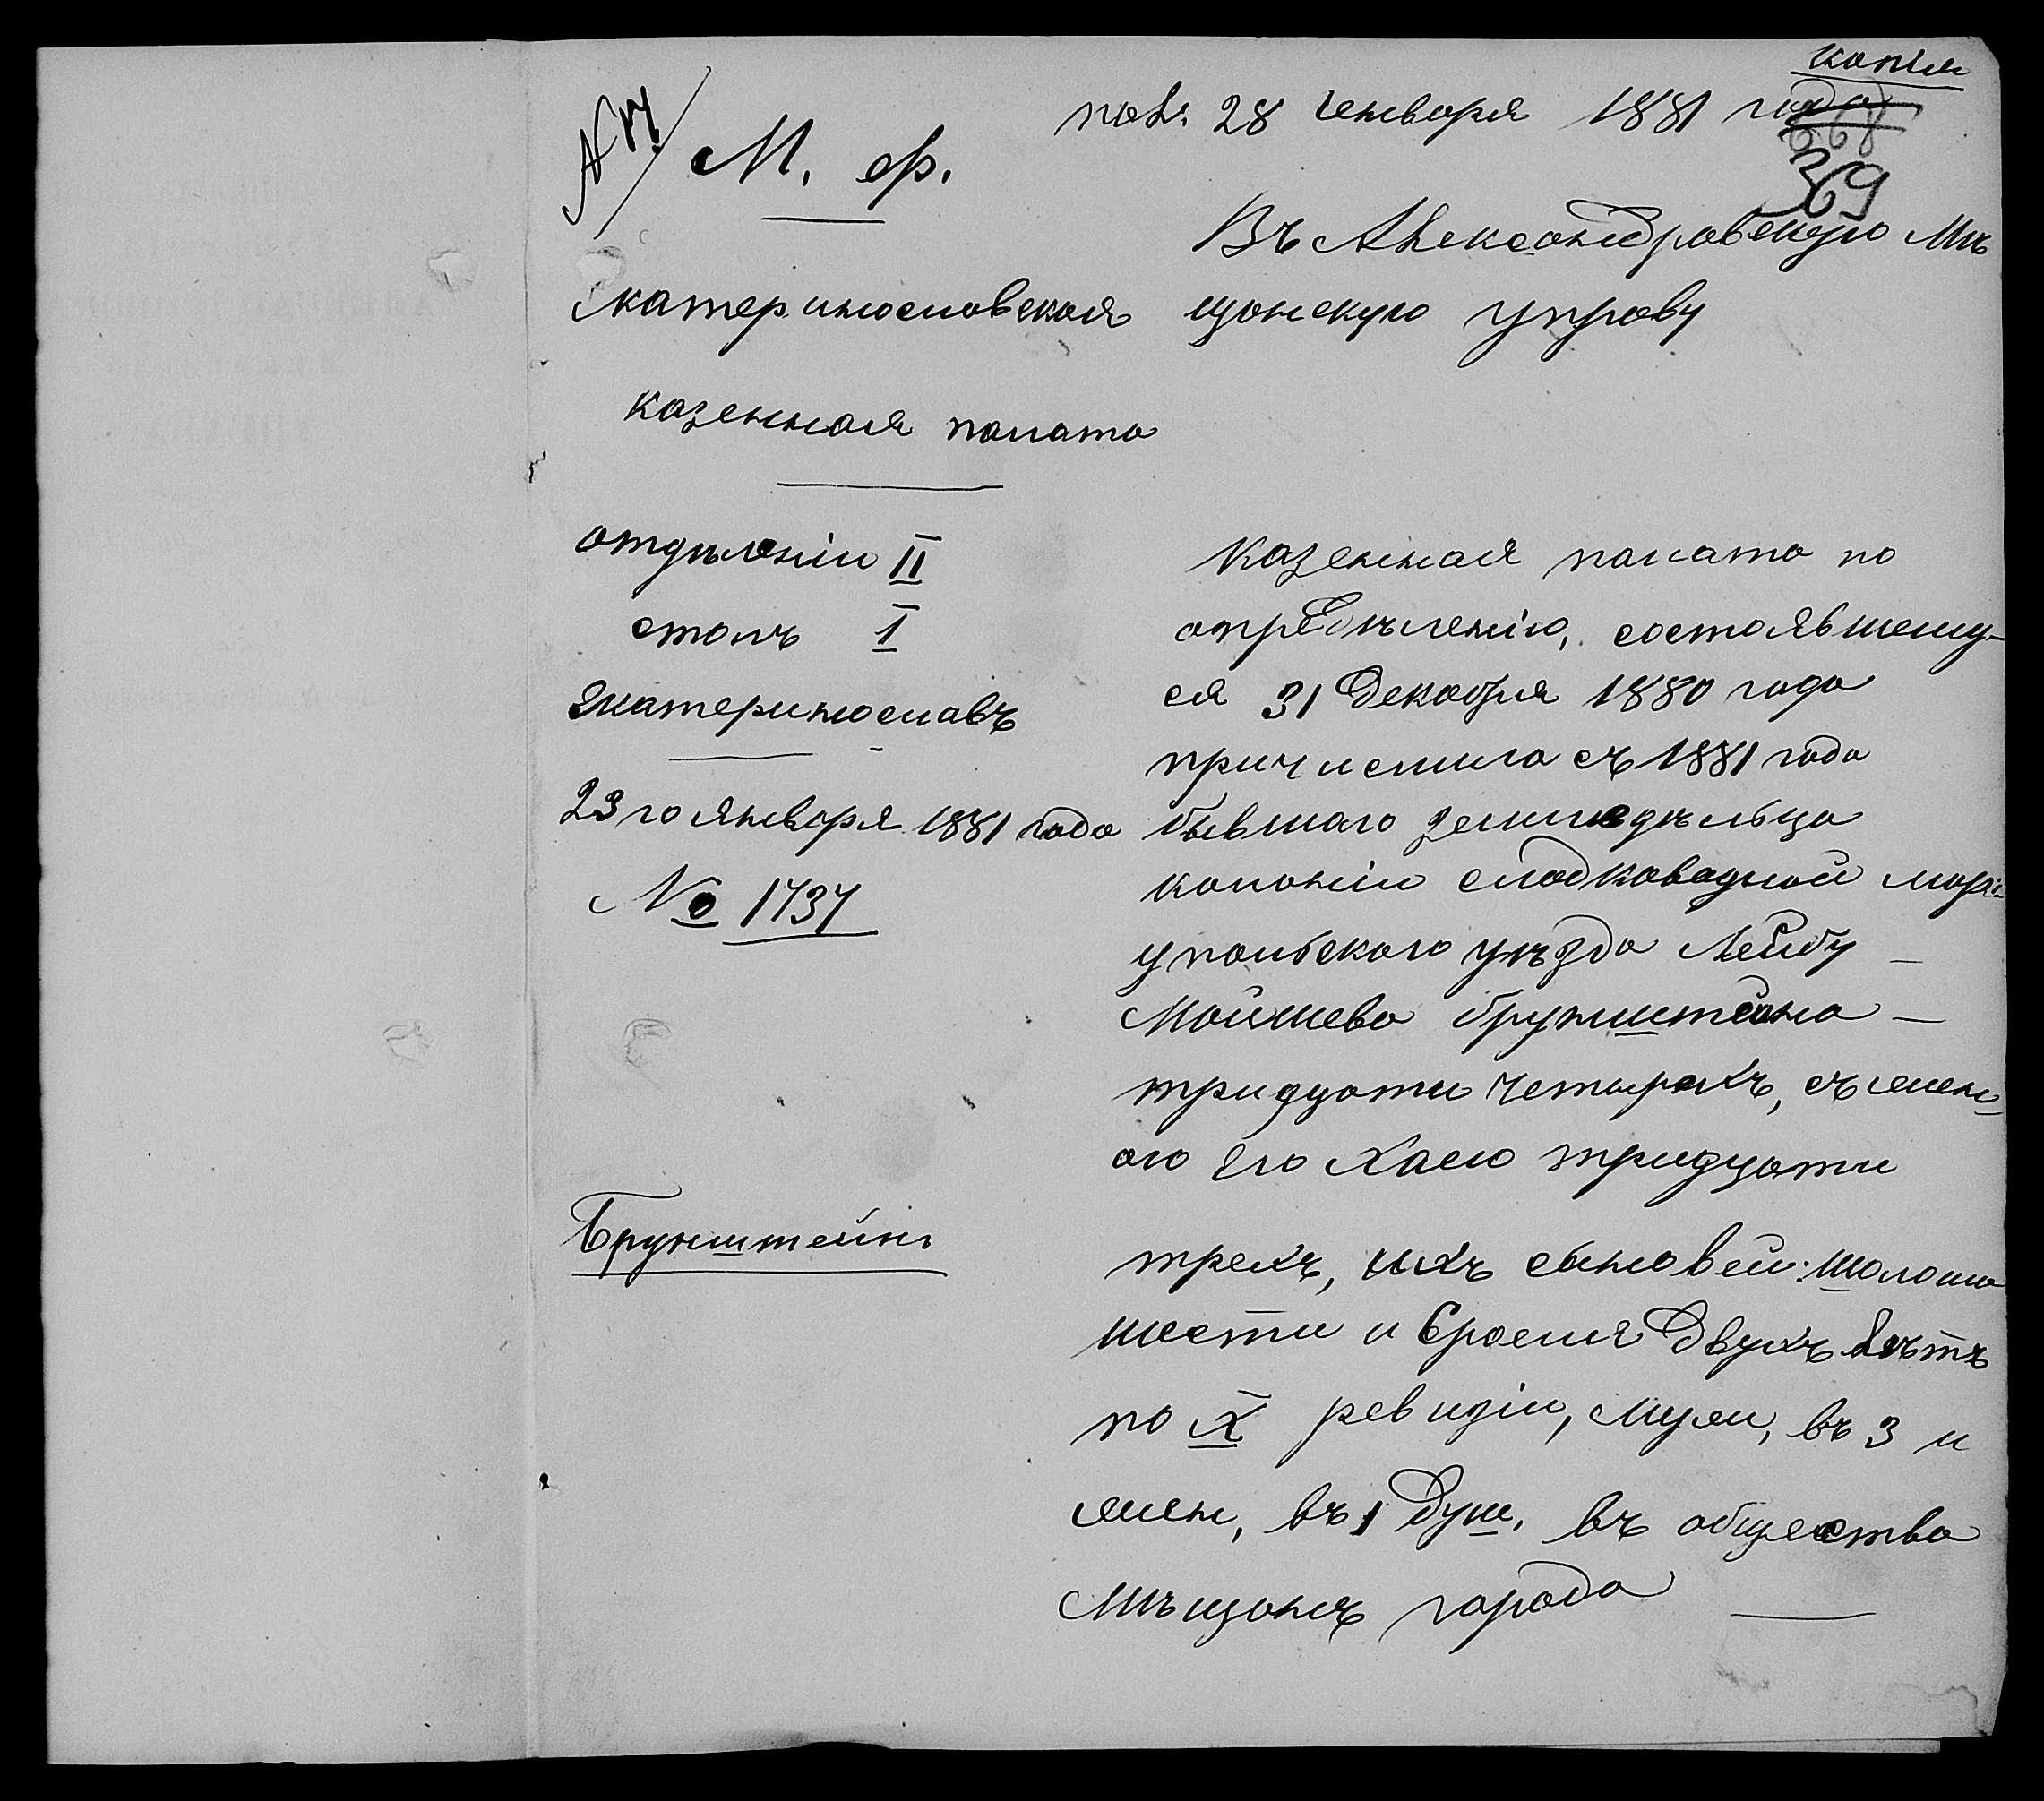 копия
пол. 28 генворя 1881 года
368
369
№ 17
М. ф.
Въ Александровскую Мѣ
щанскую управу
Екатеринославская
казенная палата
отдѣленіи II
столъ I
Екатеринославъ
23 го января 1881 года
№ 1737
Брунштейнъ
Казенная палата по
опредѣленію, состоявшему-
ся 31 Декабря 1880 года
причислила съ 1881 года
бывшаго земледѣльца
колоніи сладководной марі-
упольскаго уѣзда Лейбу
Мойшева брунштейна —
тридцати четырехъ, съ жен-
ою его Хаею тридцати
трехъ, ихъ сыновей: шолома
шести и Сроеля двухъ лѣтъ
по X ревизіи, муж, въ 3 и
жен, въ 1 душ. въ общества
Мѣщанъ города —